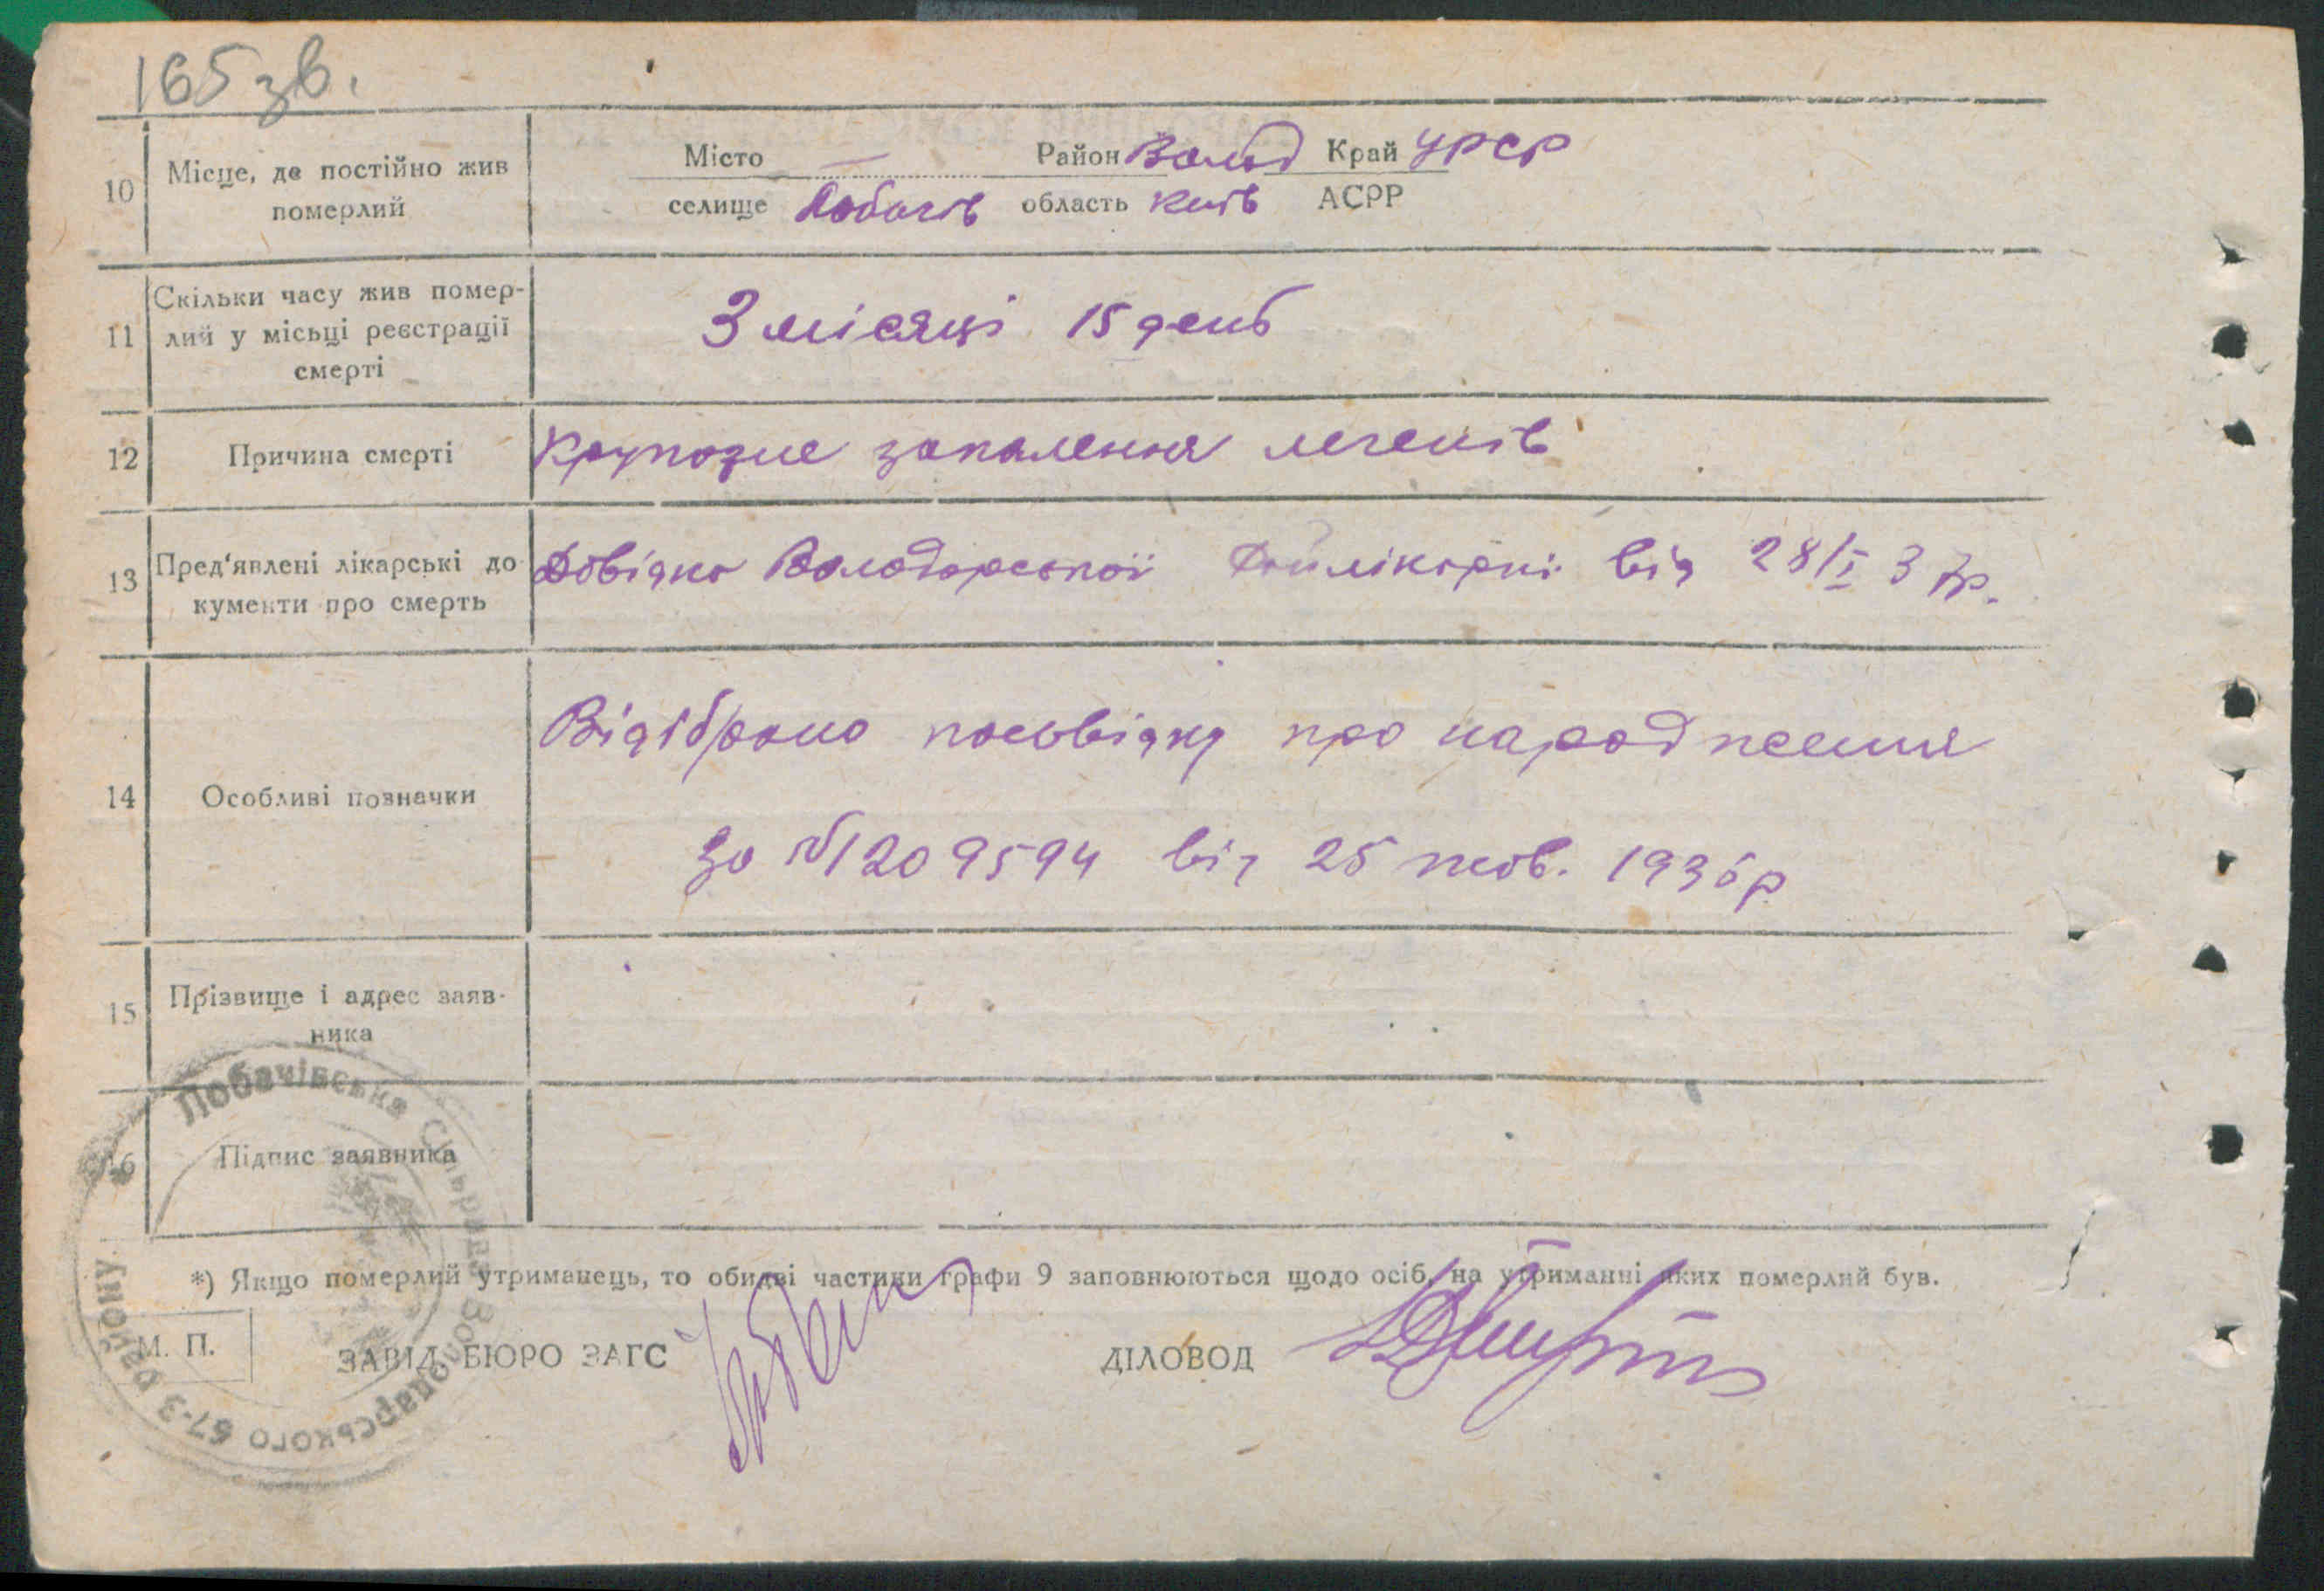 165 зв.
10 Місце, де постійно жив померлий
Місто — Район Волод Край УРСР
селище Лобачів область Київ АСРР
11 Скільки часу жив помер-
лий у місьці реєстрації
смерті
3 місяці 15 день
12 Причина смерті Крупозне запалення легенів
13 Пред'явлені лікарські до
кументи про смерть
Довідка Володарської Райлікарні від 28/I 37р.
14 Особливі позначки
Відібрано посвідку про народження
за №1209594 від 25 жов. 1936р
15 Прізвище і адрес заяв-
ника
16 Підпис заявника
*) Якщо померлий утриманець, то обидві частини графи 9 заповнюються щодо осіб, на утриманні яких померлий був.
М. П. ЗАВІД. БЮРО ЗАГС ДІЛОВОД
Лобачівська Сільрада Володарського району 67-3